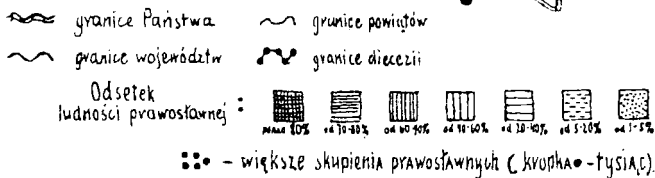 granice Państwa granice powiatów
granice województw granice diecezii
Odsetek
ludności prawosławnej :
80% od 70-80% od 60 od 40-60% od 20-40% od 5-20% od 1-5%
– większe skupienia prawosławnych (kropka•-tysiąc).